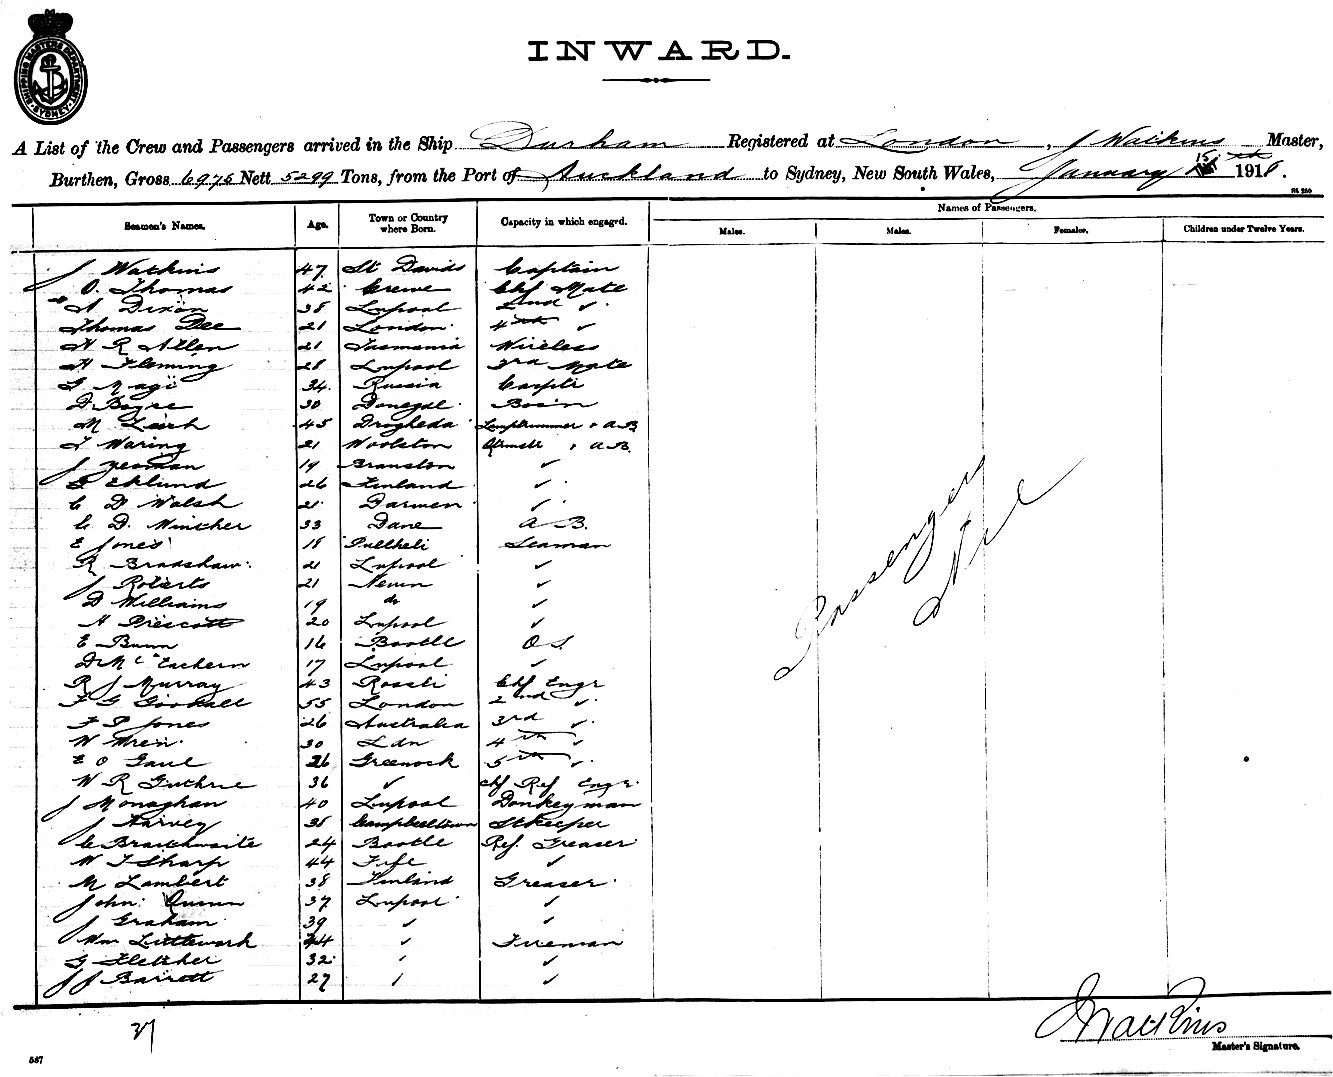 SHIPPING MASTERS DEPARTMENT SYDNEY
INWARD.
A List of the Crew and Passengers arrived in the Ship Durham Registered at London, J Watkins Master,
Burthen, Gross 6975 Nett 5299 Tons, from the Port of Auckland to Sydney, New South Wales, January 15th 1918.
Seamen's Names. Age. Town or Country where Born. Capacity in which engaged. Names of Passengers.
Males. Males. Females. Children under Twelve Years.
J Watkins 47 St Davids Captain
O. Thomas 42 Crewe Chf Mate
A Dixon 38 Lnpool 2nd ✓
Thomas Dee 21 London 4th ✓
H R Allen 21 Tasmania Wireless
H Fleming 28 Lnpool 3rd Mate
G Magi 34 Russia Carptr
D Boyce 30 Donegal Bosn
M Leech 45 Drogheda Lamptrimmer & A B
T Waring 21 Woolston & A B.
J Yeoman 19 Branston ✓
G Eklund 26 Finland ✓
C D Walsh 21 Darwen ✓
C D. Mincher 33 Dane A B.
E Jones 18 Pullheli Seaman
R Bradshaw 21 Lnpool ✓
J Roberts 21 Nevin ✓
D Williams 19 do ✓
H Prescott 20 Lnpool ✓
E Bunn 16 Bootle O S.
D McEachern 17 Lnpool ✓
R J Murray 43 Rossli Chf Engr
F G Goodall 55 London 2nd ✓
F P Jones 26 Australia 3rd ✓
W Wren 30 Ldn 4th ✓
E O Gaul 26 Greenock 5th ✓
W R Guthrie 36 ✓ Chf Ref Engr
J Monaghan 40 Lnpool Donkeyman
J Harvey 38 Campbeltown Stkeeper
C Braithwaite 24 Bootle Ref. Greaser
W T Sharp 44 Fife ✓
M Lambert 38 Finland Greaser
John Quinn 37 Lnpool ✓
J Graham 39 ✓ ✓
Wm Littlework 44 ✓ Fireman
G Fletcher 32 ✓ ✓
J J Barrett 27 ✓ ✓
Passengers
Nil
37
J Watkins
Master's Signature.
587